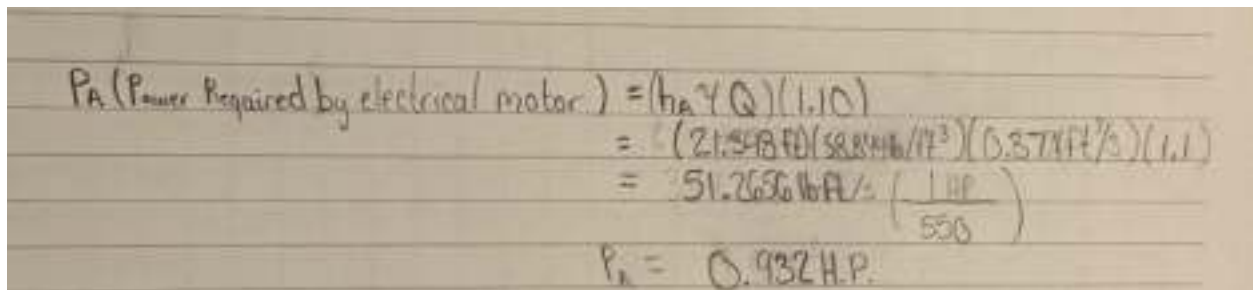 PA (Power Required by electrical motor) = (hA γ Q)(1.10)
= (21.598 ft)( lb/ft³)(0.374 ft³/s)(1.1)
= 51.2656 lb ft/s (1 HP / 550)
PA = 0.932 H.P.